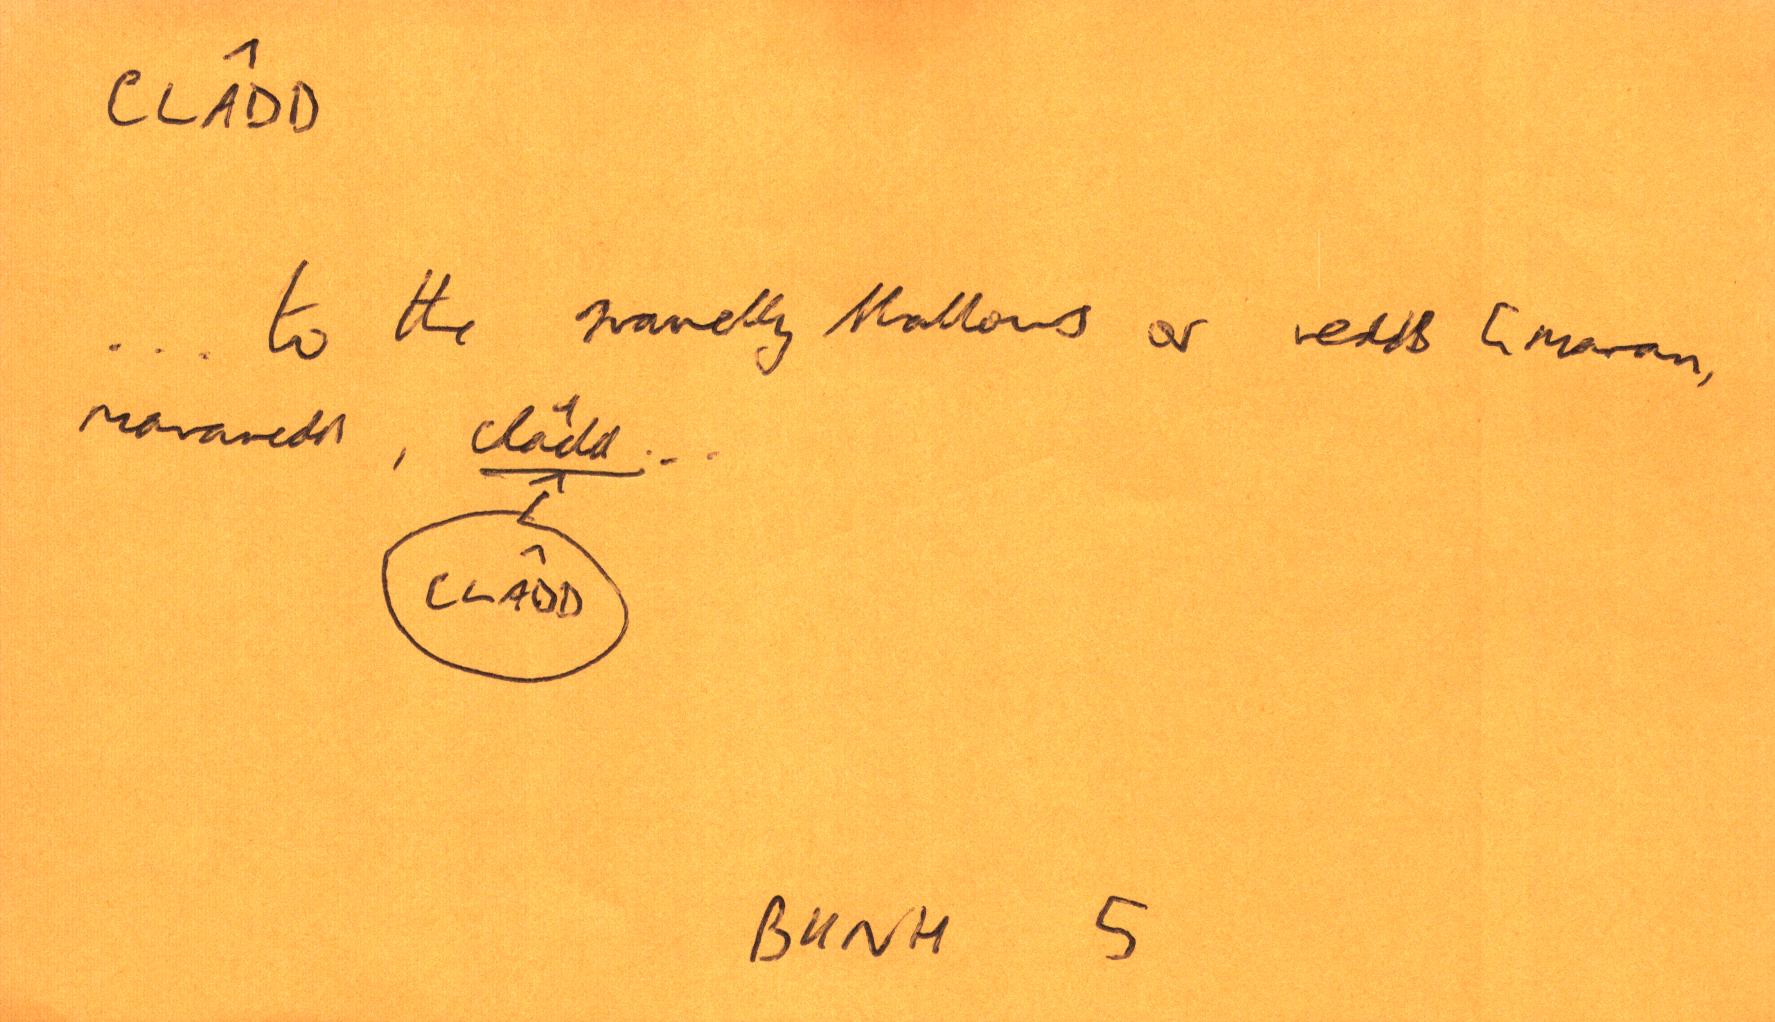 CLÂDD
... to the gravelly shallows or redds [maran,
maranedd, clâdd...
CLÂDD
BUNH 5